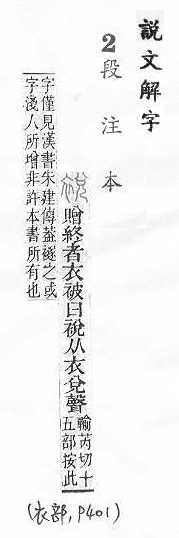 說文解字
2段注本
裞贈終者衣被曰裞从衣兌聲
輸芮切十
五部按此
字僅見漢書朱建傳葢襚之或
字淺人所增非許本書所有也
(衣部,P401)